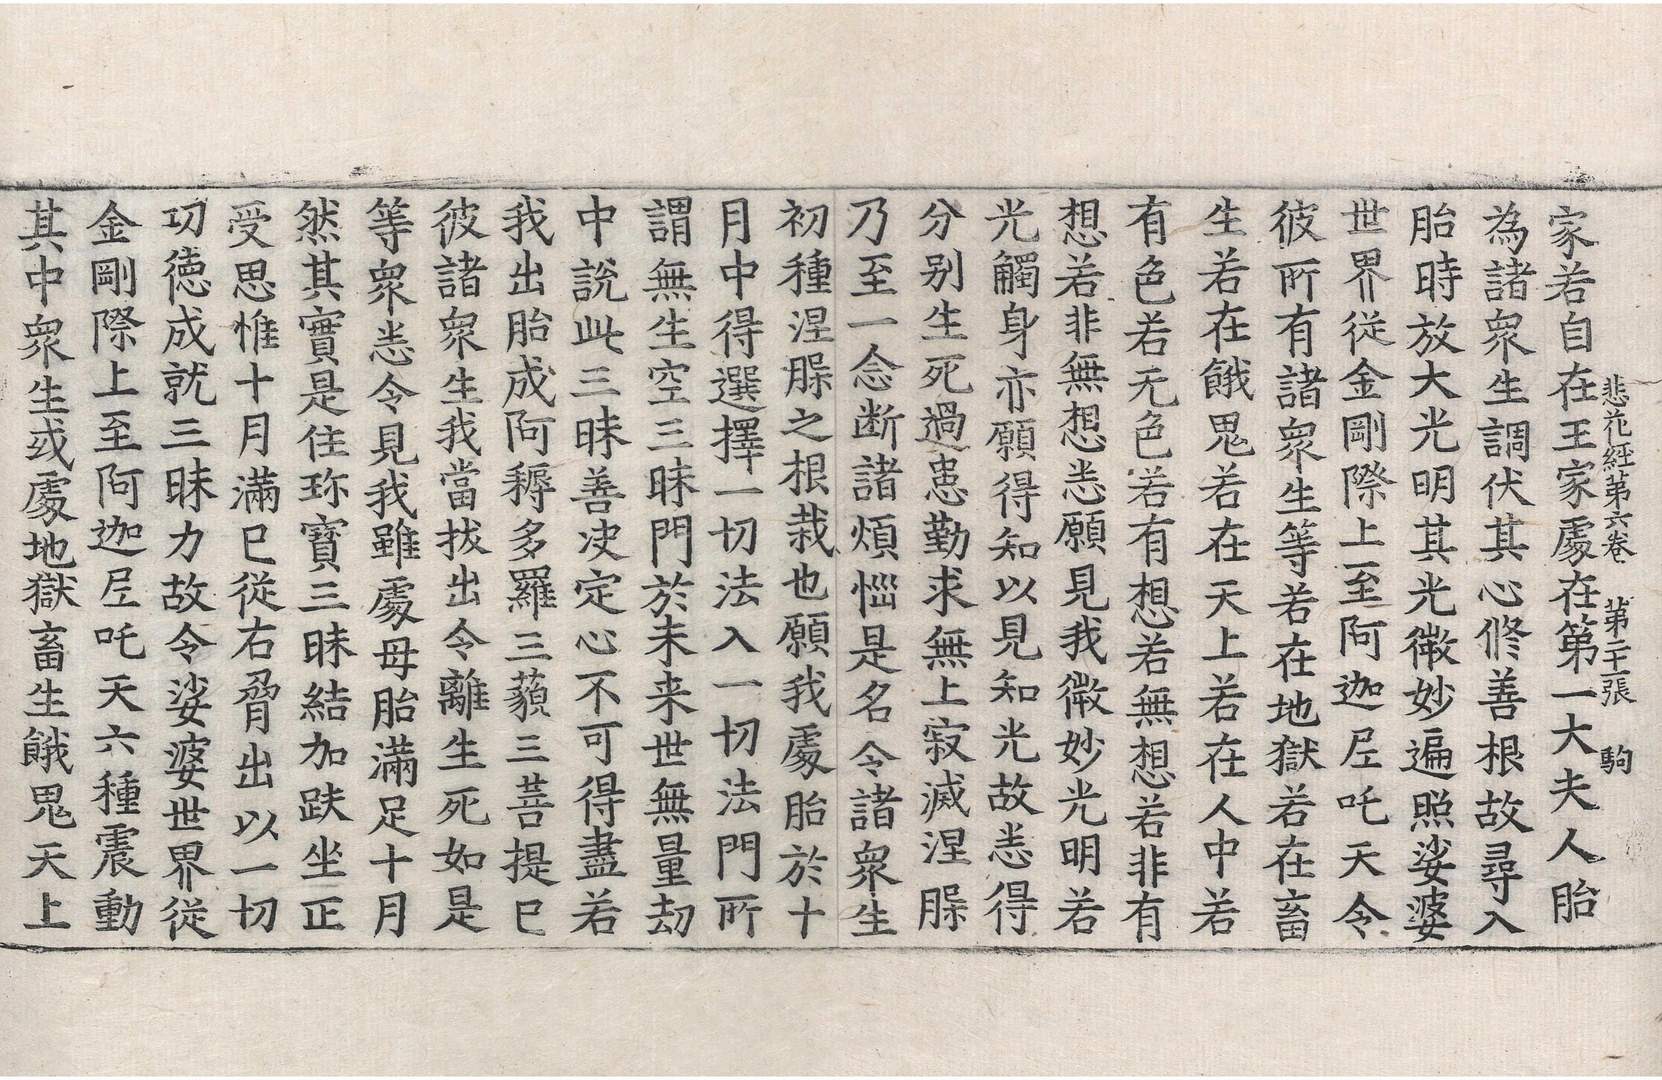 悲花経第六卷 第二十二張 駒
家若自在王家處在第一大夫人胎
為諸衆生調伏其心修善根故尋入
胎時放大光明其光微妙遍照娑婆
世界從金剛際上至阿迦尼吒天令
彼所有諸衆生等若在地獄若在畜
生若在餓鬼若在天上若在人中若
有色若无色若有想若無想若非有
想若非無想悉願見我微妙光明若
光觸身亦願得知以見知光故悉得
分别生死過患勤求無上寂滅涅槃
乃至一念断諸煩惱是名令諸衆生
初種涅槃之根栽也願我處胎於十
月中得選擇一切法入一切法門所
謂無生空三昧門於未来世無量劫
中說此三昧善决定心不可得盡若
我出胎成阿耨多羅三藐三菩提已
彼諸衆生我當拔出令離生死如是
等衆悉令見我雖處母胎滿足十月
然其實是住珎寶三昧結加趺坐正
受思惟十月滿已從右脅出以一切
功徳成就三昧力故令娑婆世界從
金剛際上至阿迦尼吒天六種震動
其中衆生或處地獄畜生餓鬼天上